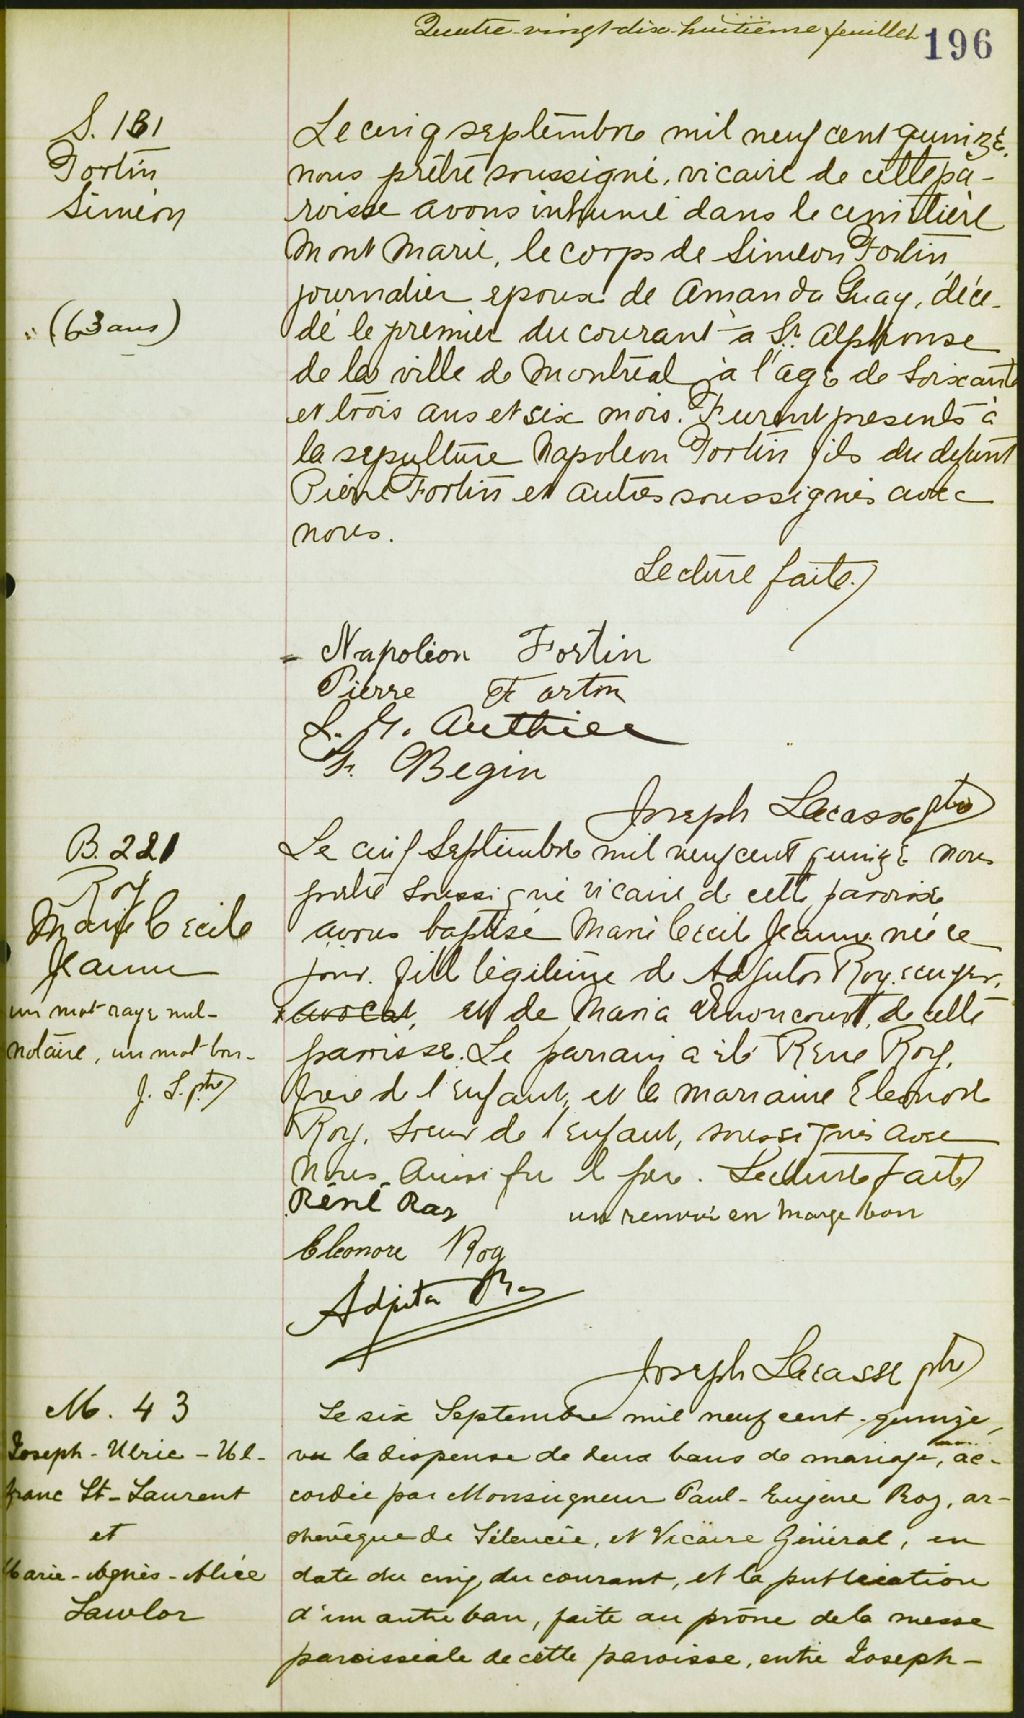 Quatre-vingt-dix-huitième feuillet 196
S. 131
Fortin
Siméon
(63 ans)
Le cinq septembre mil neuf cent quinze,
nous prêtre soussigné, vicaire de cette pa-
roisse avons inhumé dans le cimetière
Mont Marie, le corps de Siméon Fortin
journalier epoux de Amanda Guay, décé-
dé le premier du courant à St Alphonse
de la ville de Montréal à l'age de soixante
et trois ans et six mois. Furent presents à
la sepulture Napoleon Fortin fils du defunt
Pierre Fortin et autres soussignés avec
nous.
Lecture faite.
Napoléon Fortin
Pierre Forton
Authier
Begin
Joseph Lacasse ptre
B. 221
Roy
Marie Cecile
Jeanne
un mot rayé nul-
notaire, un mot bon-
J. L. ptre
Le cinq Septembre mil neuf cent quinze nous
prêtre soussigné vicaire de cette paroisse
avons baptisé Marie Cecile Jeanne née ce
jour, fille légitime de Adjutor Roy, écuyer,
avocat, et de Maria de cette
paroisse. Le parrain a été Réné Roy,
frère de l'Enfant, et la marraine Eleonore
Roy, soeur de l'Enfant, soussignés avec
nous. Ainsi fu le père. Lecture faite
un renvoi en marge bon
Réné Roy
Eleonore Roy
Adjutor Roy
Joseph Lacasse ptre
M. 43
Joseph-Ulric-Wil-
franc St-Laurent
et
Marie-Agnès-Alice
Lawlor
Le six Septembre mil neuf cent quinze,
vu la dispense de deux bans de mariage, ac-
cordée par Monseigneur Paul-Eugène Roy, ar-
chevêque de Séleucie, et Vicaire Général, en
date du cinq du courant, et la publication
d'un autre ban, faite au prône de la messe
paroissiale de cette paroisse, entre Joseph-